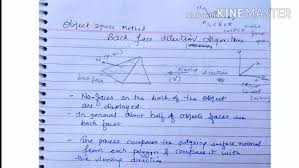 Made with KINEMASTER
Object space Method
Back face detection Algorithm
N
back face
viewing direction
- No faces on the back of the object are displayed.
- In general about half of objects faces are back faces
- This process compares the outgoing surface normal from each polygon & compare it with the viewing direction